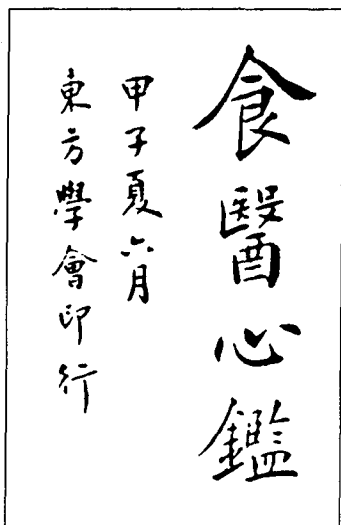 食醫心鑑
甲子夏六月
東方學會印行